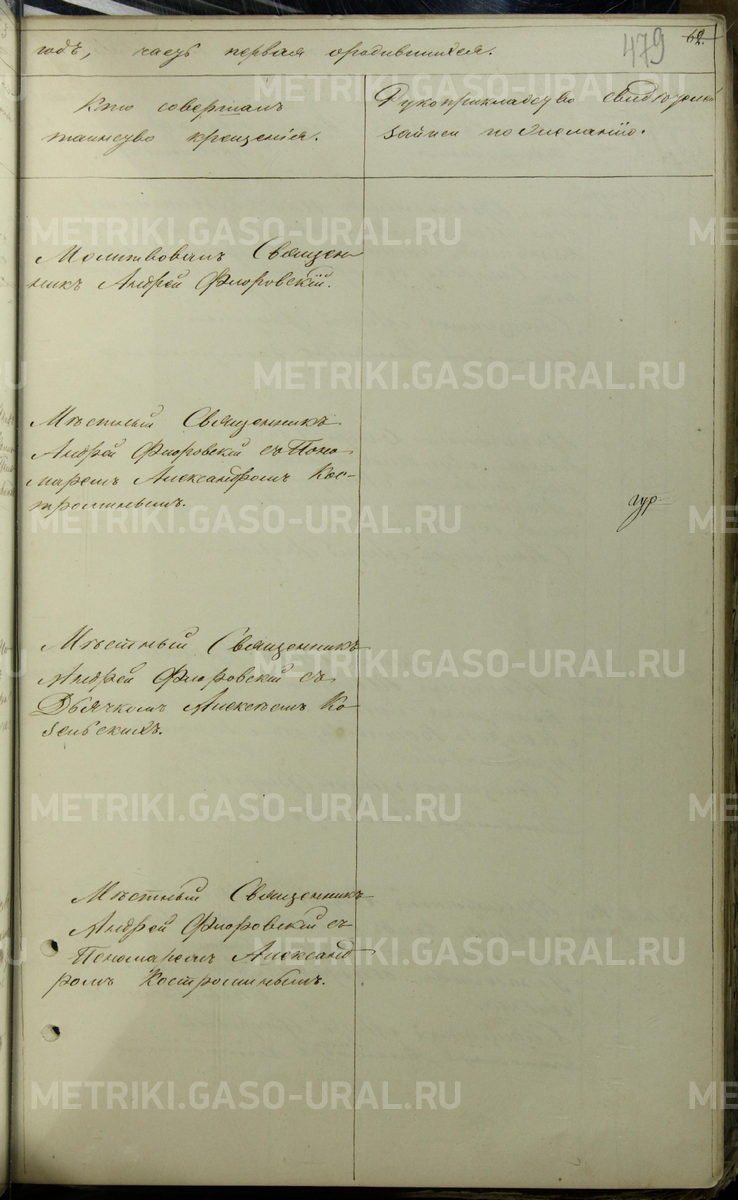 годъ, часть первая ородившихся.
479
62.
Кто совершалъ
таинство крещенія.
Рукоприкладство свидѣтелей
записи по желанію.
Молитвовалъ Священ
никъ Андрей Флоровскій.
Мѣстный Священникъ
Андрей Флоровскій съ Поно
маремъ Александромъ Кос-
троминымъ.
Мѣстный Священникъ
Андрей Флоровскій съ
Дьячкомъ Алексѣемъ Ко
зельскимъ.
Мѣстный Священникъ
Андрей Флоровскій съ
Пономаремъ Александ
ромъ Костроминымъ.
METRIKI.GASO-URAL.RU